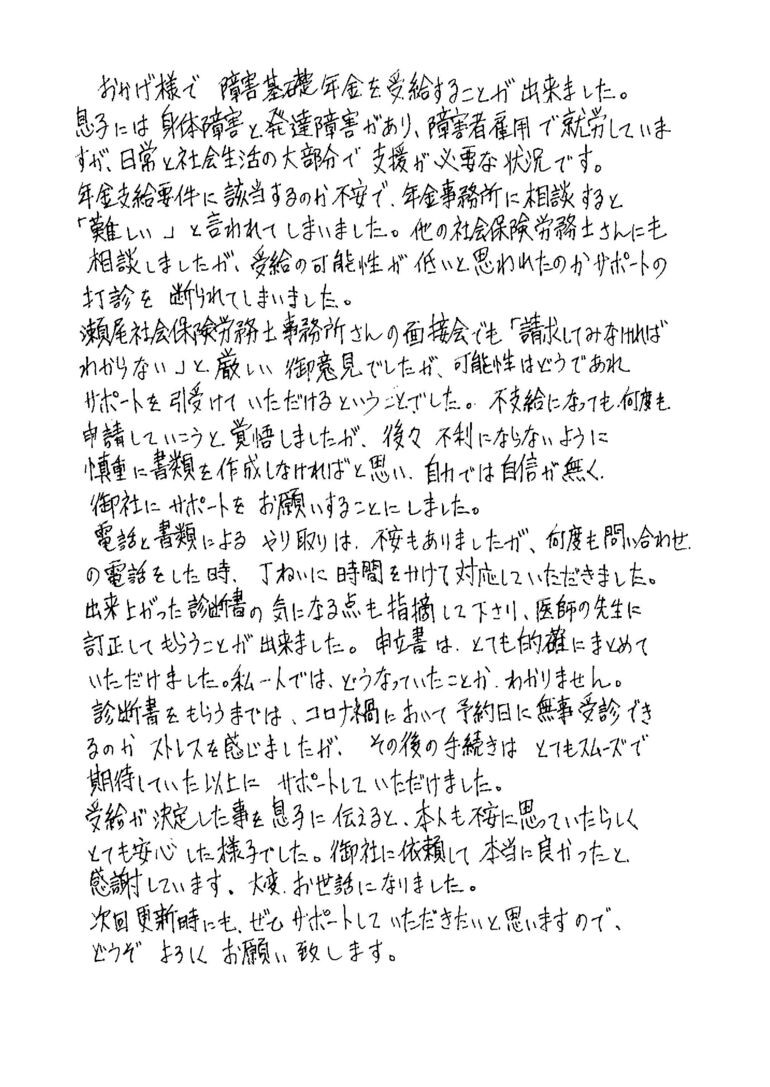 おかげ様で 障害基礎年金を受給することが出来ました。
息子には身体障害と発達障害があり、障害者雇用で就労していま
すが、日常と社会生活の大部分で支援が必要な状況です。
年金支給要件に該当するのか不安で、年金事務所に相談すると
「難しい」と言われてしまいました。他の社会保険労務士さんにも
相談しましたが、受給の可能性が低いと思われたのかサポートの
打診を断られてしまいました。
瀬尾社会保険労務士事務所さんの面接会でも「請求してみなければ
わからない」と厳しい御意見でしたが、可能性はどうであれ
サポートを引受けていただけるということでした。不支給になっても何度も
申請していこうと覚悟しましたが、後々不利にならないように
慎重に書類を作成しなければと思い、自力では自信が無く、
御社にサポートをお願いすることにしました。
電話と書類によるやり取りは、不安もありましたが、何度も問い合わせ
の電話をした時、丁ねいに時間をかけて対応していただきました。
出来上がった診断書の気になる点も指摘して下さり、医師の先生に
訂正してもらうことが出来ました。申立書は、とても的確にまとめて
いただけました。私一人では、どうなっていたことか、わかりません。
診断書をもらうまでは、コロナ禍において予約日に無事受診でき
るのかストレスを感じましたが、その後の手続きはとてもスムーズで
期待していた以上にサポートしていただけました。
受給が決定した事を息子に伝えると、本人も不安に思っていたらしく
とても安心した様子でした。御社に依頼して本当に良かったと
感謝しています。大変、お世話になりました。
次回更新時にも、ぜひサポートしていただきたいと思いますので、
どうぞ よろしくお願い致します。